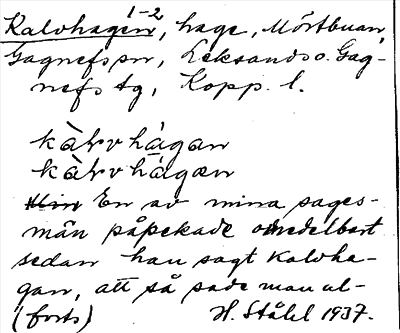 1-2
Kalvhagen, hage, Mörtbuan,
Gagnefs sn, Leksands o. Gag-
nefs tg, Kopp. l.
kàrvhágan
kàrvhágæn
Min En av mina sages-
män påpekade omedelbart
sedan han sagt kalvha-
gan, att så sade man al-
(forts) H. Ståhl 1937.